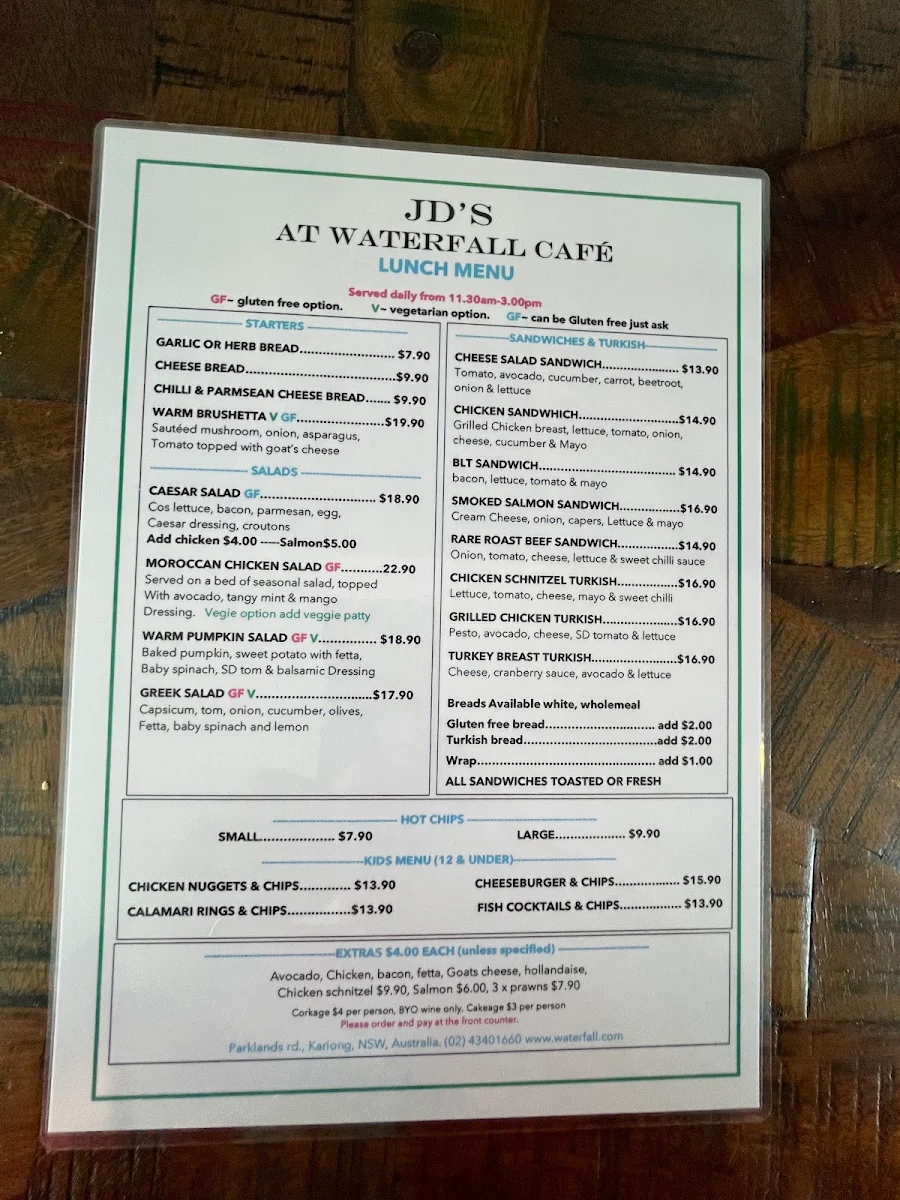 JD'S
AT WATERFALL CAFÉ
LUNCH MENU
Served daily from 11.30am-3.00pm
GF~ gluten free option. V~ vegetarian option. GF~ can be Gluten free just ask
STARTERS
GARLIC OR HERB BREAD........................ $7.90
CHEESE BREAD.......................................$9.90
CHILLI & PARMSEAN CHEESE BREAD...... $9.90
WARM BRUSHETTA V GF......................$19.90
Sautéed mushroom, onion, asparagus,
Tomato topped with goat's cheese
SALADS
CAESAR SALAD GF............................. $18.90
Cos lettuce, bacon, parmesan, egg,
Caesar dressing, croutons
Add chicken $4.00 -----Salmon$5.00
MOROCCAN CHICKEN SALAD GF..........22.90
Served on a bed of seasonal salad, topped
With avocado, tangy mint & mango
Dressing. Vegie option add veggie patty
WARM PUMPKIN SALAD GF V............... $18.90
Baked pumpkin, sweet potato with fetta,
Baby spinach, SD tom & balsamic Dressing
GREEK SALAD GF V.............................$17.90
Capsicum, tom, onion, cucumber, olives,
Fetta, baby spinach and lemon
SANDWICHES & TURKISH
CHEESE SALAD SANDWICH.................... $13.90
Tomato, avocado, cucumber, carrot, beetroot,
onion & lettuce
CHICKEN SANDWHICH.........................$14.90
Grilled Chicken breast, lettuce, tomato, onion,
cheese, cucumber & Mayo
BLT SANDWICH.................................... $14.90
bacon, lettuce, tomato & mayo
SMOKED SALMON SANDWICH................$16.90
Cream Cheese, onion, capers, Lettuce & mayo
RARE ROAST BEEF SANDWICH................$14.90
Onion, tomato, cheese, lettuce & sweet chilli sauce
CHICKEN SCHNITZEL TURKISH................$16.90
Lettuce, tomato, cheese, mayo & sweet chilli
GRILLED CHICKEN TURKISH....................$16.90
Pesto, avocado, cheese, SD tomato & lettuce
TURKEY BREAST TURKISH.......................$16.90
Cheese, cranberry sauce, avocado & lettuce
Breads Available white, wholemeal
Gluten free bread............................. add $2.00
Turkish bread...................................add $2.00
Wrap............................................... add $1.00
ALL SANDWICHES TOASTED OR FRESH
HOT CHIPS
SMALL.................... $7.90 LARGE................... $9.90
KIDS MENU (12 & UNDER)
CHICKEN NUGGETS & CHIPS............. $13.90 CHEESEBURGER & CHIPS................. $15.90
CALAMARI RINGS & CHIPS................$13.90 FISH COCKTAILS & CHIPS................ $13.90
EXTRAS $4.00 EACH (unless specified)
Avocado, Chicken, bacon, fetta, Goats cheese, hollandaise,
Chicken schnitzel $9.90, Salmon $6.00, 3 x prawns $7.90
Corkage $4 per person, BYO wine only. Cakeage $3 per person
Please order and pay at the front counter.
Parklands rd., Kariong, NSW, Australia. (02) 43401660 www.waterfall.com